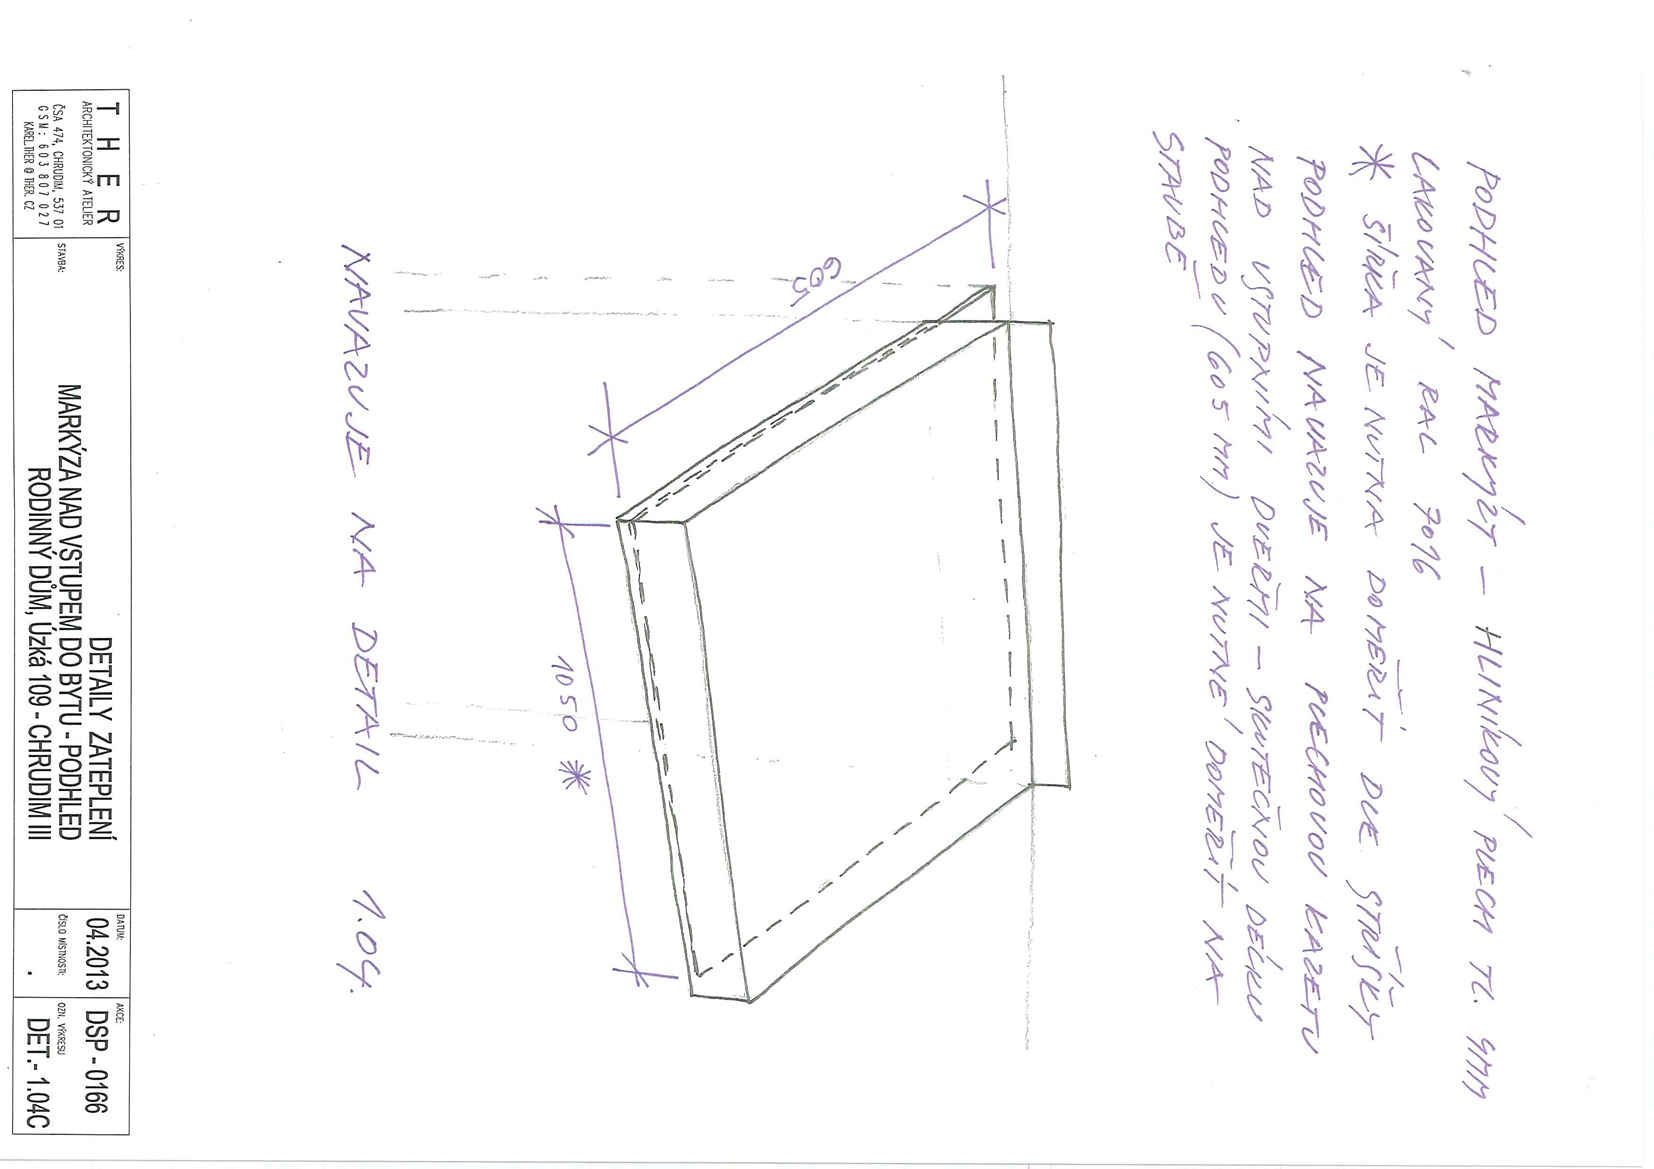 PODHLED MARKÝZY – HLINÍKOVÝ PLECH TL. 4MM
LAKOVANÝ RAL 7016
* ŠÍŘKA JE NUTNÁ DOMĚŘIT DLE STŘÍŠKY
PODHLED NAVAZUJE NA PLECHOVOU KAZETU
NAD VSTUPNÍMI DVEŘMI – SKUTEČNOU DÉLKU
PODHLEDU (605 MM) JE NUTNÉ DOMĚŘIT NA
STAVBĚ
605
1050 *
NAVAZUJE NA DETAIL 1.04.
THER
ARCHITEKTONICKÝ ATELIER
ČSA 474, CHRUDIM, 537 01
GSM: 603 807 027
KAREL.THER @ THER.CZ
VÝKRES:
DETAILY ZATEPLENÍ
MARKÝZA NAD VSTUPEM DO BYTU - PODHLED
STAVBA:
RODINNÝ DŮM, Úzká 109 - CHRUDIM III
DATUM:
04.2013
ČÍSLO MÍSTNOSTI:
.
AKCE:
DSP - 0166
OZN. VÝKRESU
DET.- 1.04C